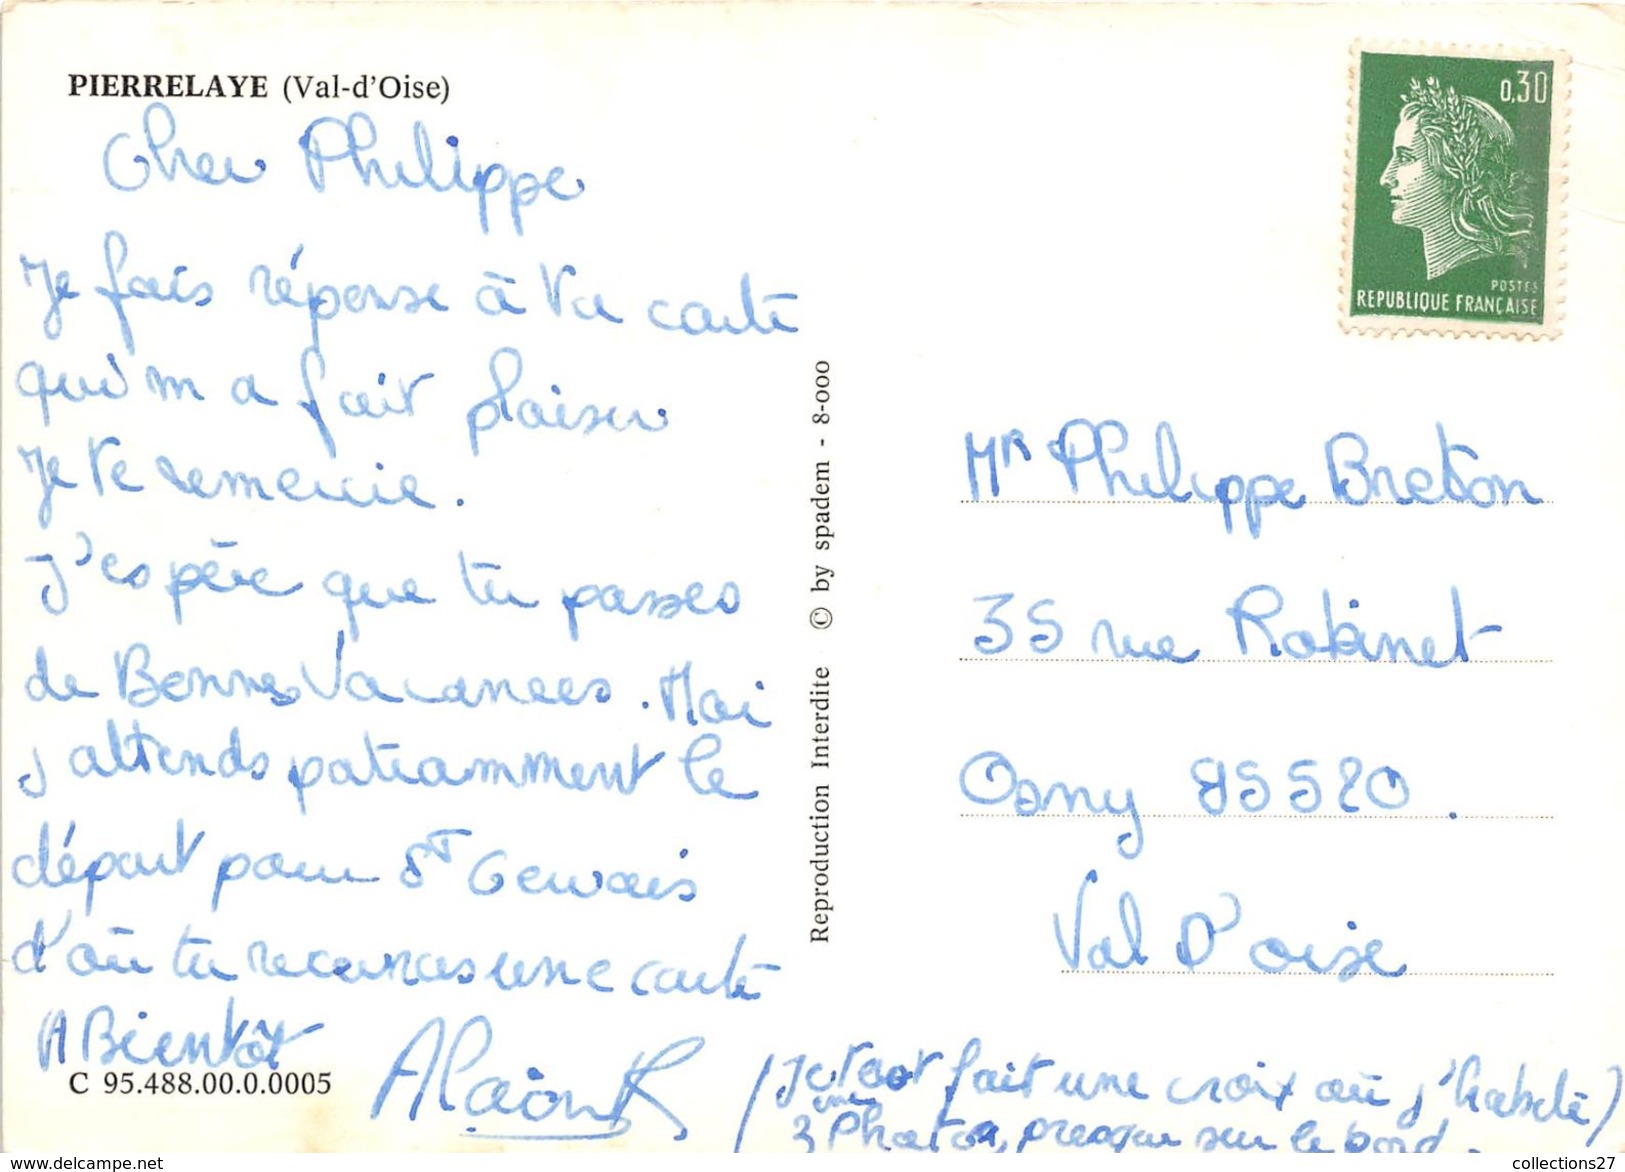 PIERRELAYE (Val-d'Oise)
Cher Philippe
Je fais réponse à ta carte
qui m'a fait plaisir
Je te remercie.
J'espère que tu passes
de Bonnes Vacances. Moi
j'attends patiamment le
départ pour St Gervais
d'où tu recevras une carte
A Bientôt
Alain
C 95.488.00.0.0005
Reproduction Interdite © by spadem - 8-000
0,30
POSTES
REPUBLIQUE FRANÇAISE
Mr Philippe Breton
35 rue Robinet
Osny 95520.
Val D'oise
(Je fait une croix où j'habite)
3ème Photo, presque sur le bord.
collections27